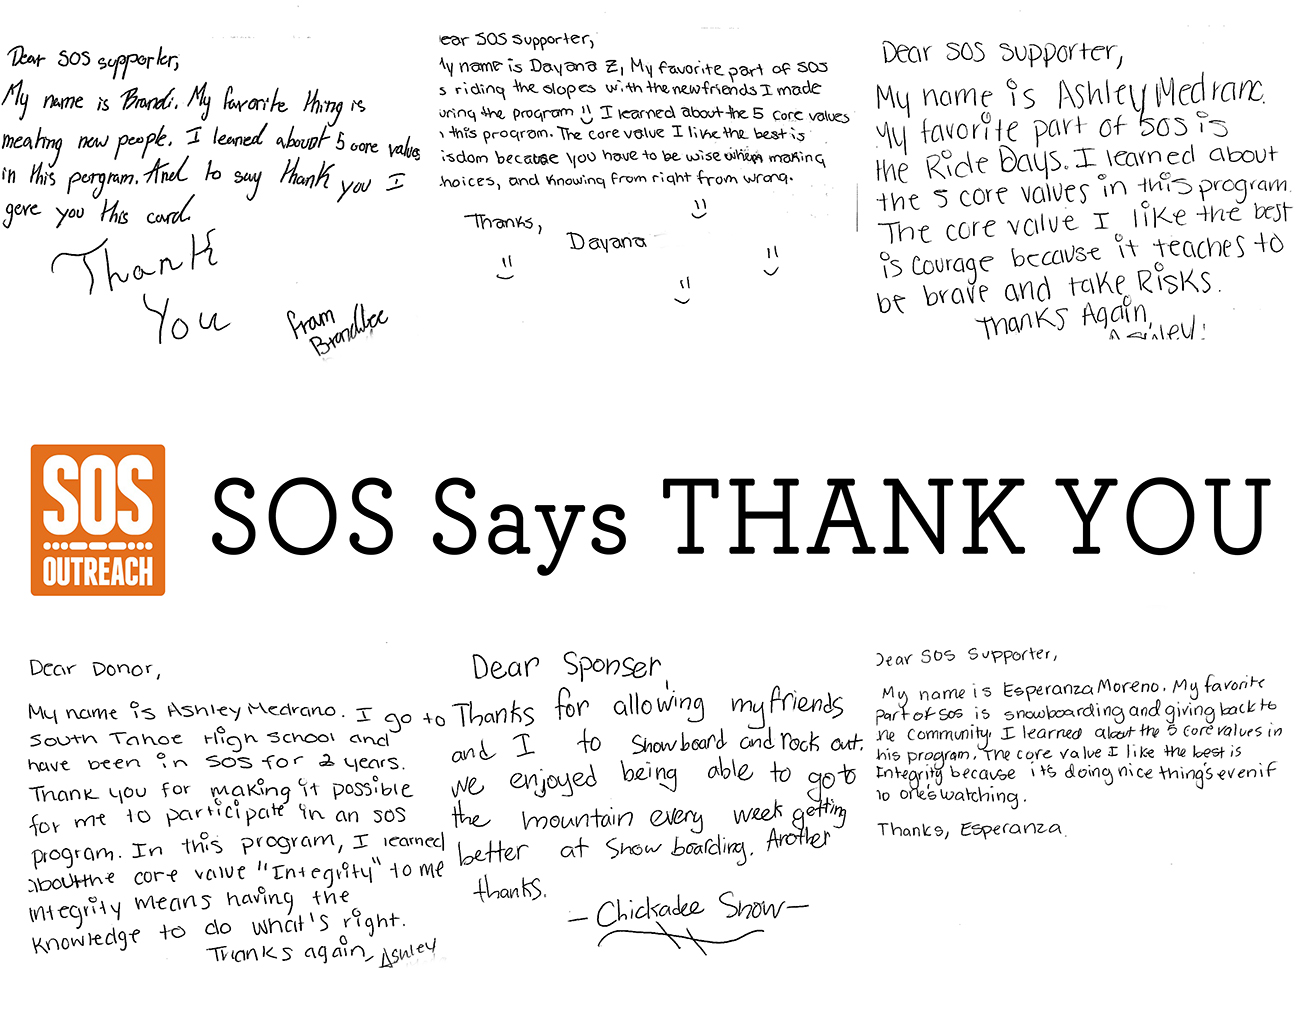 Dear SOS supporter,
My name is Brandi. My favorite thing is
meating new people. I leaned abount 5 core values
in this pergram. And to say thank you I
geve you this card.
Thank
You
fram
Brandibee
ear SOS supporter,
y name is Dayana Z, My favorite part of SOS
s riding the slopes with the new friends I made
uring the program I learned about the 5 core values
this program. The core value I like the best is
isdom because you have to be wise when making
hoices, and knowing from right from wrong.
Thanks,
Dayana
Dear SOS supporter,
My name is Ashley Medrano.
My favorite part of SOS is
the Ride Days. I learned about
the 5 core values in this program.
The core value I like the best
is Courage because it teaches to
be brave and take Risks.
Thanks Again,
Ashley!
SOS
OUTREACH
SOS Says THANK YOU
Dear Donor,
My name is Ashley Medrano. I go to
South Tahoe High School and
have been in SOS for 2 years.
Thank you for making it possible
for me to participate in an SOS
program. In this program, I learned
about the core value "Integrity" to me
integrity means having the
knowledge to do what's right.
Thanks again, Ashley
Dear Sponser,
Thanks for allowing my friends
and I to Snowboard and rock out.
we enjoyed being able to go to
the mountain every week getting
better at Snow boarding. Another
thanks.
- Chickadee Snow -
Dear SOS Supporter,
My name is Esperanza Moreno. My favorite
part of SOS is snowboarding and giving back to
he community. I learned about the 5 core values in
his program. The core value I like the best is
Integrity because its doing nice thing's even if
no one's watching.
Thanks, Esperanza.